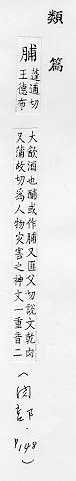 類篇
脯
蓬逋切
王德布
大飲酒也酺或作脯又匪父切說文乾肉
又蒲故切爲人物災害之神文一重音二
(肉部. P148)